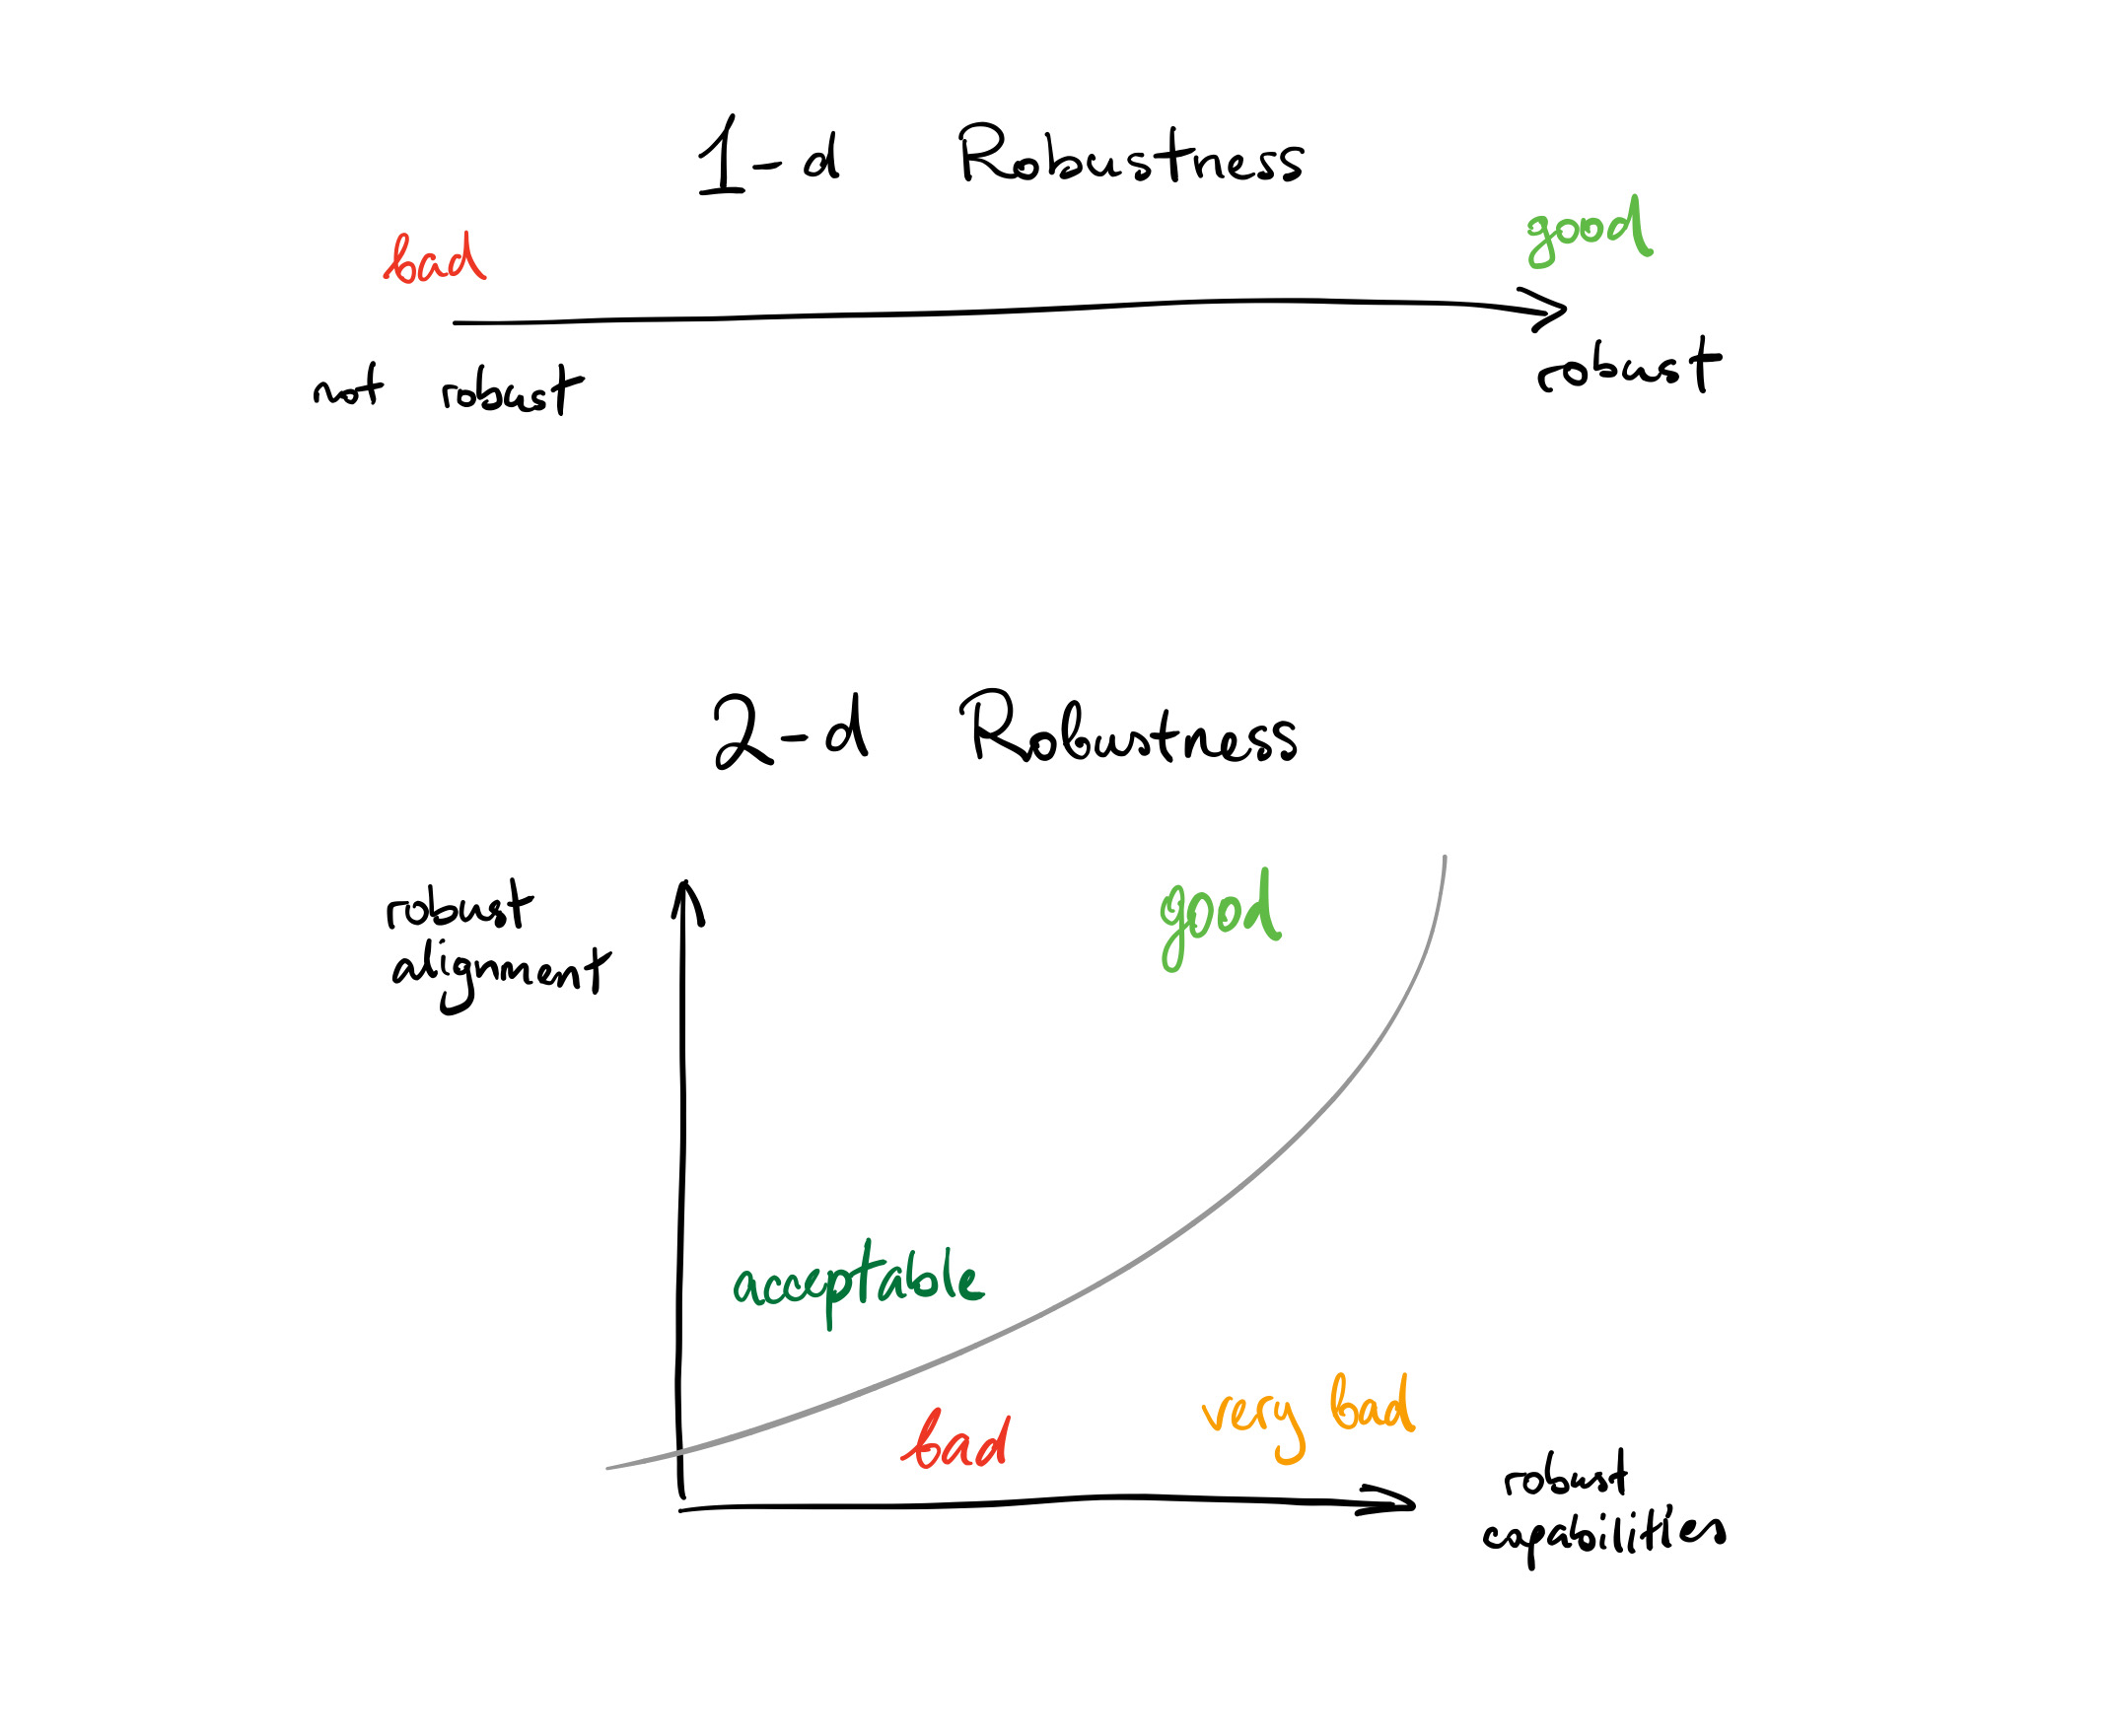 1-d Robustness
bad
good
not robust
robust
2-d Robustness
robust
alignment
good
acceptable
bad
very bad
robust
capabilities